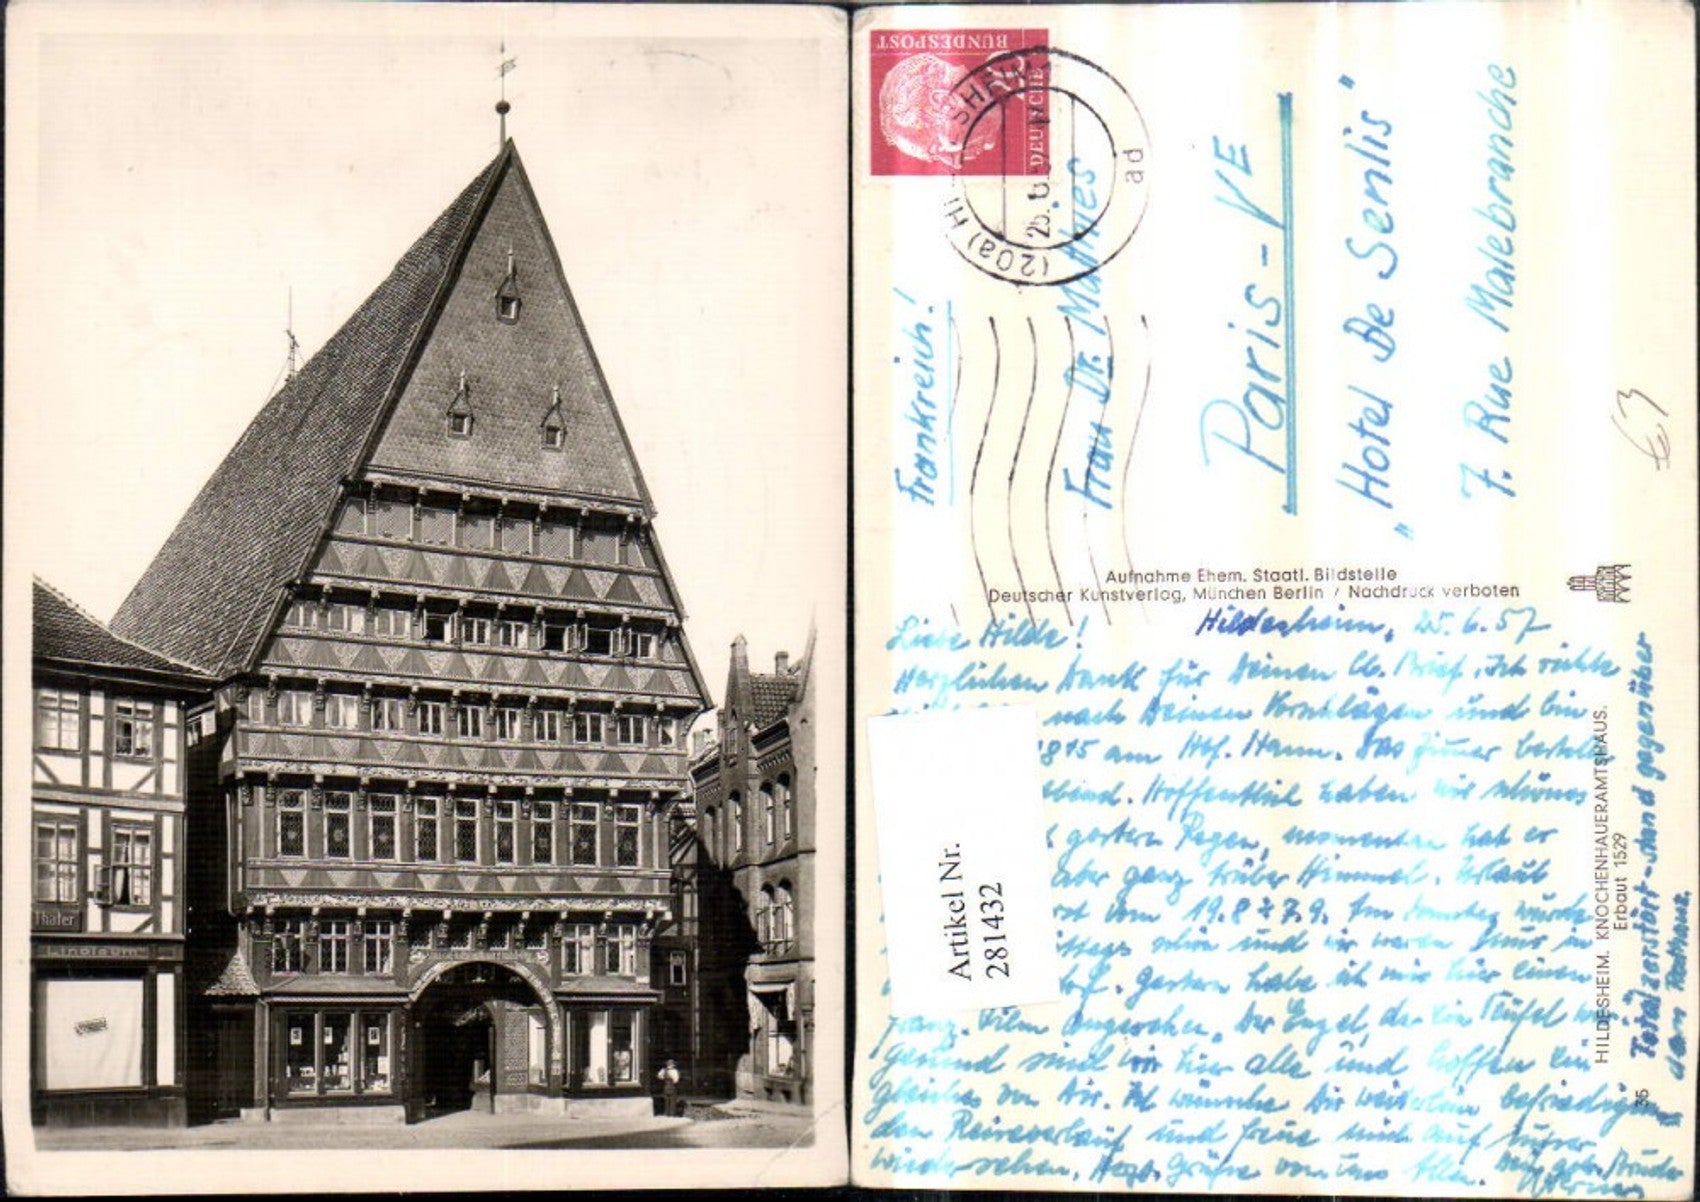 Thater
Linoleum
DEUTSCHE
BUNDESPOST
(20a) HI SHEIM
ad
Frankreich!
Frau Dr. Mathes
Paris - VE
"Hotel De Senlis"
7. Rue Malebranche
€3
Aufnahme Ehem. Staatl. Bildstelle
Deutscher Kunstverlag, München Berlin / Nachdruck verboten
Hildesheim, 25.6.57
Liebe Hilde!
Herzlichen Dank für Deinen lb. Brief. Ich richte
nach Deinen Vorschlägen und bin
1815 am Hbf. Hann. Das Zimer bestelle
abend. Hoffentlich haben wir schönes
gestern Regen, momentan hat er
aber ganz trüber Himmel. Urlaub
erst vom 19.8 - 7.9. Am Sonntag wurde
mittags schön und wir waren kurz in
Gestern habe ich mir hier einen
franz. Film angesehen, "Der Engel, der ein Teufel war"
Gesund sind wir hier alle und hoffen ein
gleiches von Dir. Ich wünsche Dir weiterhin befriedigen
den Reiseverlauf und freue mich auf unser
wiedersehen. Herzl. Grüße von uns Allen. Dein gtr. Bruder
Werner
HILDESHEIM. KNOCHENHAUERAMTSHAUS.
Erbaut 1529
35
Total zerstört - stand gegenüber
dem Rathaus.
Artikel Nr.
281432